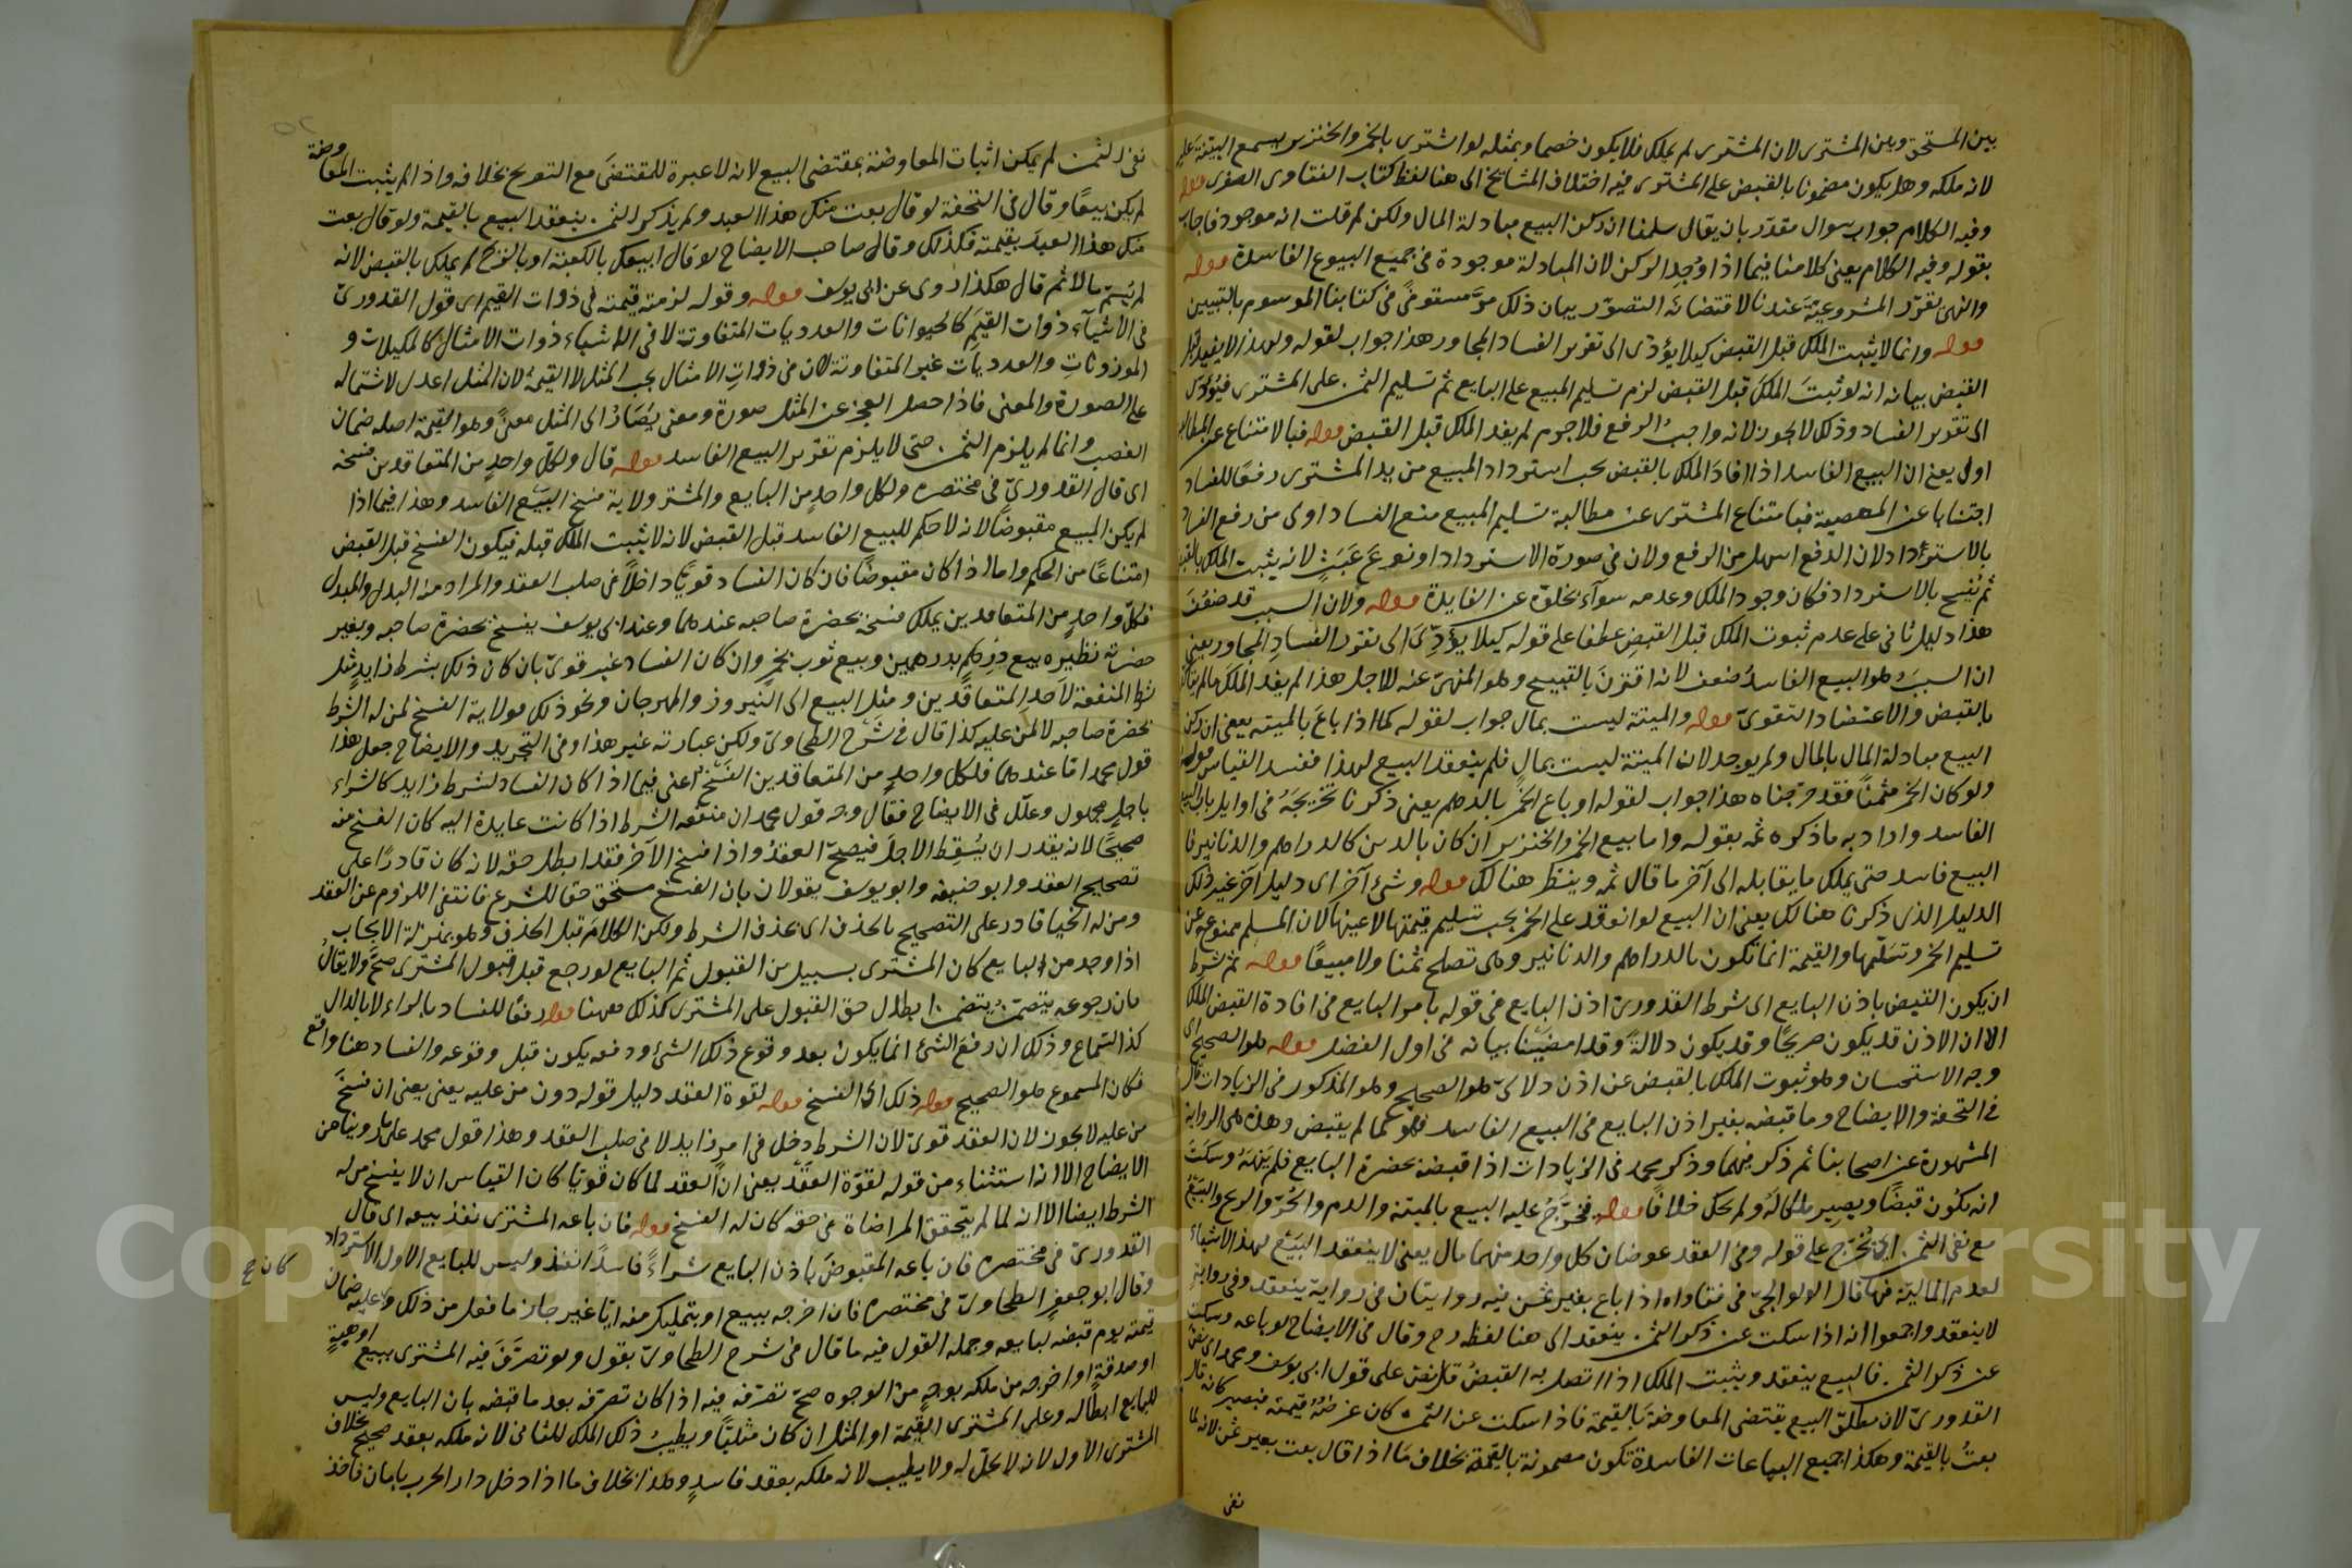 بين المستحق وبين المشترى لان المشترى لم يملك فلا يكون خصما وبمثله لو اشترى بالخمر والخنزير يسمع البينة عليه
لانه ملكه وهل يكون مضمونا بالقبض على المشترى فيه اختلاف المشايخ الى هنا لفظ كتاب الفتاوى الصغرى قوله
وفيه الكلام جواب سوال مقدر بان يقال سلمنا ان ركن البيع مبادلة المال ولكن لم قلت انه موجود فاجاب
بقوله وفيه الكلام يعنى كلامنا فيما اذا وُجِد الركن لان المبادلة موجودة فى جميع البيوع الفاسدة قوله
والنهى يقرّر المشروعيّة عندنا لاقتضائه التصوّر بيان ذلك مرّ مستوفىً فى كتابنا الموسوم بالتبيين
قوله وانما لا يثبت الملك قبل القبض كيلا يؤدّى الى تقرير الفساد المجاور هذا جواب لقوله ولهذا لا يفيد قبل
القبض بيانه انه لو ثبتَ الملكُ قبل القبض لزم تسليم المبيع على البايع ثم تسليم الثمن على المشترى فيُؤدّى
الى تقرير الفساد وذلك لا يجوز لانه واجبُ الرفع فلا جرم لم يفد الملك قبل القبض قوله فبالامتناع عن المطالبة
اولى يعنى ان البيع الفاسد اذا افادَ الملك بالقبض يجب استرداد المبيع من يد المشترى رفعًا للفساد
اجتنابا عن المعصية فبامتناع المشترى عن مطالبة تسليم المبيع منع الفساد اولى من رفع الفساد
بالاسترداد لان الدفع اسهل من الرفع ولان فى صورة الاسترداد نوعَ عَبَثٍ لانه يثبت الملك بالقبض
ثم يُفسخ بالاسترداد فكان وجود الملك وعدمه سوآء لخلوّه عن الفايدة قوله ولان السبب قد ضعُفَ
هذا دليل ثانى على عدم ثبوت الملك قبل القبض عطفا على قوله كيلا يؤدّى الى تقرر الفسادِ المجاور يعنى
ان السببَ وهو البيع الفاسدُ ضعف لانه اقترنَ بالقبيح وهو المنهىّ عنه فلاجل هذا لم يفد الملكَ مالم يتأكد
بالقبض والاعتضاد التقوىّ قوله والميتة ليست بمال جواب لقوله كما اذا باعَ بالميتة يعنى ان ركن
البيع مبادلة المال بالمال ولم يوجد لان الميتة ليست بمالٍ فلم ينعقد البيع لهذا ففسد القياس قوله
ولو كان الخمر مثمنًا فقد خرّجناه هذا جواب لقوله او باع الخمرَ بالدراهم يعنى ذكرنا تخريجَهُ فى اوايل باب البيع
الفاسد واراد به ما ذكره ثمه بقوله واما بيع الخمر والخنزير ان كان بالدين كالدراهم والدنانير فا
البيع فاسد حتى يملك ما يقابله الى آخر ما قال ثمه وينظر هنالك قوله وشئ آخر اى دليل آخر غير ذلك
الدليل الذى ذكرنا هنالك يعنى ان البيع لو انعقد على الخمر يجب تسليم قيمتها لا عينها لان المسلم ممنوع عن
تسليم الخمر وتسلّمها والقيمة انما تكون بالدراهم والدنانير وهى تصلح ثمنا ولا مبيعًا قوله ثم شرط
ان يكون القبض باذن البايع اى شرط القدورىّ اذن البايع فى قوله بامر البايع فى افادة القبض الملك
الا ان الاذن قد يكون صريحًا وقد يكون دلالةً وقد امضينا بيانه فى اول الفصل قوله هو الصحيح اى
وجه الاستحسان وهو ثبوت الملك بالقبض عن اذن دلالىّ هو الصحيح وهو المذكور فى الزيادات قال
فى التحفة والايضاح وما قبضه بغير اذن البايع فى البيع الفاسد فهو كما لم يقبض وهذه هى الرواية
المشهورة عن اصحابنا ثم ذكر فيهما وذكر محمد فى الزيادات اذا قبضه بحضرة البايع فلم يَنْهَهُ وسكَتَ
انه يكون قبضًا ويصير ملكًا لَهُ ولم يحك خلافًا قوله فخرّجَ عليه البيع بالميتة والدم والحُرّ والريح والبَيْعُ
مع نفى الثمن اى تُخَرّج على قوله وفى العقد عوضان كل واحد منهما مال يعنى لا ينعقد البَيْعُ لهذه الاشياء
لعدم الماليّة فيها قال الولوالجىّ فى فتاواه اذا باع بغير ثمن فيه روايتان فى رواية ينعقد وفى رواية
لا ينعقد واجمعوا انه اذا سكت عن ذكر الثمن ينعقد الى هنا لفظه رح وقال فى الايضاح لو باعه وسكت
عن ذكر الثمن فالبيع ينعقد ويثبت الملك اذا اتصل به القبضُ على قول ابى يوسف ومحمد
القدورىّ لان مطلق البيع يقتضى المعاوضةَ بالقيمة فاذا سكت عن الثمن كان غرضُهُ قيمته فيصير كانه قال
بعتُ بالقيمة وهكذا جميع البياعات الفاسدة تكون مضمونة بالقيمة بخلاف مَا اذا قال بعت بغير ثمن لانه لما
نفى
نفى الثمن لم يمكن اثبات المعاوضة بمقتضى البيع لانه لا عبرة للمقتضَى مع التصريح بخلافه واذا لم يثبت المعاوضة
لم يكن بيعًا وقال فى التحفة لو قال بعت منك هذا العبد ولم يذكر الثمن ينعقد البيع بالقيمة ولو قال بعت
منك هذا العبدَ بقيمته فكذلك وقال صاحب الايضاح لو قال ابيعك بالكعبة او بالريح لم يملك بالقبض لانه
لم يُسمّ مالا ثم قال هكذا روى عن ابى يوسف قوله وقوله لزمته قيمته فى ذوات القيم اى قول القدورىّ
فى الاشياَء ذوات القيَمِ كالحيوانات والعدديات المتفاوتة لا فى الاشياء ذوات الامثال كالمكيلات و
الموزوناتِ والعدديات غير المتفاوتة لان فى ذوات الامثال يجب المثل لا القيمة لان المثل اعدل لاشتماله
على الصورة والمعنى فاذا حصل العجز عن المثل صورة ومعنى يُصَارُ الى المثل معنىً وهو القيمة اصله ضمان
الغصب وانما لم يلزم الثمن حتى لا يلزم تقرير البيع الفاسد قوله قال ولكلّ واحدٍ من المتعاقدين فسخه
اى قال القدورىّ فى مختصره ولكل واحدٍ من البايع والمشترى ولاية فسخ البَيْع الفاسد وهذا فيما اذا
لم يكن المبيع مقبوضًا لانه لا حكم للبيع الفاسد قبل القبض لانه لا يثبت الملك قبله فيكون الفسخ قبل القبض
امتناعًا من الحكم واما اذا كان مقبوضًا فان كان الفساد قويًّا داخلًا فى صلب العقد والمراد منه البدل والمبدل
فكلّ واحدٍ من المتعاقدين يملك فسخه بحضرة صاحبه عندهما وعند ابى يوسف يفسخ بحضرة صاحبه وبغير
حضرته نظيره بيع درهم بدرهمين وبيع ثوب بخمرٍ وان كان الفساد غير قوىّ بان كان ذلك بشرط زايدٍ مثل
شرط المنفعة لاَحد المتعاقدين ومثل البيع الى النيروز والمهرجان ونحو ذلك فولاية الفسخ لمن له الشرط
بحضرة صاحبه لا لمن عليه كذا قال فى شرح الطحاوىّ ولكن عبارته غير هذا وفى التجريد والايضاح جعل هذا
قول محمد اما عندهما فلكل واحدٍ من المتعاقدين الفسخ اعنى فيما اذا كان الفساد لشرط زايد كالشراء
باجلٍ مجهول وعلّل فى الايضاح فقال وجه قول محمد ان منفعة الشرط اذا كانت عايدة اليه كان الفسخ منه
صحيحًا لانه يقدر ان يُسقِط الاجلَ فيصحّ العقدُ واذا فسخ الآخر فقد ابطل حقه لانه كان قادرًا على
تصحيح العقد وابو حنيفه وابو يوسف يقولان بان الفسخ مستحق حقا للشرع فانتفى اللزوم عن العقد
ومن له الخيا قادر على التصحيح بالحذف اى بحذف الشرط ولكن الكلامَ قبل الحذف وهو بمنزلة الايجاب
اذا وجد من البايع كان المشترى بسبيل من القبول ثم البايع لو رجع قبل قبول المشترى صحّ ولا يقالُ
بان رجوعه يتضمن ابطال حق القبول على المشترى كذلك ههنا قوله رفعًا للفساد بالراء لا بالدال
كذا السماع وذلك ان رفعَ الشئ انما يكون بعد وقوع ذلك الشئ ودفعه يكون قبل وقوعه والفساد هنا واقع
فكان المسموع هو الصحيح قوله ذلك اى الفسخ قوله لقوة العقد دليل قوله دون من عليه يعنى يعنى ان فسخَ
من عليه لا يجوز لان العقد قوىّ لان الشرط دخل فى امرٍ زايد لا فى صلب العقد وهذا قول محمد على ما روينا من
الايضاح الا انه استثناء من قوله لقوّة العقد يعنى ان العقد لما كان قويّا كان القياس ان لا يفسخ من له
الشرط ايضا الا انه لما لم يتحقق المراضاة فى حقه كان له الفسخ قوله فان باعه المشترى نفذ بيعه اى قال
القدورىّ فى مختصره فان باعه المقبوضَ باذن البايع شراءً فاسدًا نفذ وليس للبايع الاول الاسترداد
كان صح
وقال ابو جعفرٍ الطحاوىّ فى مختصره فان اخرجه ببيع او بتمليك منه ايّا غير جاز ما فعل من ذلك وعليه ضمان
قيمته يوم قبضه لبايعه وجملة القول فيه ما قال فى شرح الطحاوىّ بقول ولو تصرّفَ فيه المشترى ببيع او هبةٍ
او صدقةٍ او اخرجه من ملكه بوجهٍ من الوجوه صحّ تصرّفه فيه اذا كان تصرّفه بعد ما قبضه باذن البايع وليس
للبايع ابطاله وعلى المشترى القيمة او المثل ان كان مثليًّا ويطيبُ ذلك الملك للثانى لانه ملكه بعقد صحيح بخلاف
المشترى الاول لانه لا يحلّ له ولا يطيب لانه ملكه بعقد فاسدٍ وهذا بخلاف ما اذا دخل دار الحرب بامان فاخذ
Copyright © King Saud University